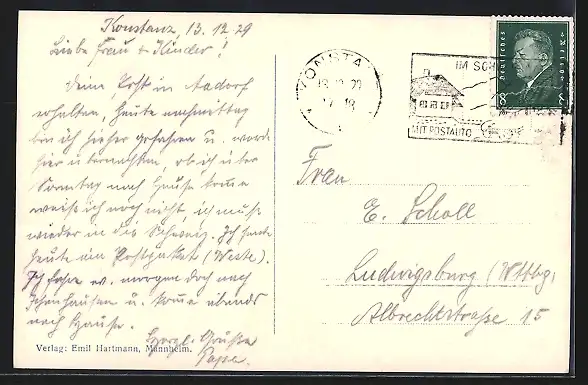 Konstanz, 13.12.29
Liebe Frau + Kinder!
Deine Post in Aadorf
erhalten, heute nachmittag
bin ich hieher gefahren u. werde
hier übernachten, ob ich über
Sonntag nach Hause komme
weiß ich noch nicht, ich muß
wieder in die Schweiz. Ich sende
heute ein Postpaket (Weste).
Ich fahre ev. morgen doch nach
u. komme abends
nach Hause.
Herzl. Grüße
Papa.
Verlag: Emil Hartmann, Mannheim.
KONSTANZ
13.12.29
17-18
IM SCH
MIT POSTAUTO
Deutsches Reich
8
Frau
E. Scholl
Ludwigsburg (Wttbg.
Albrechtstraße 15